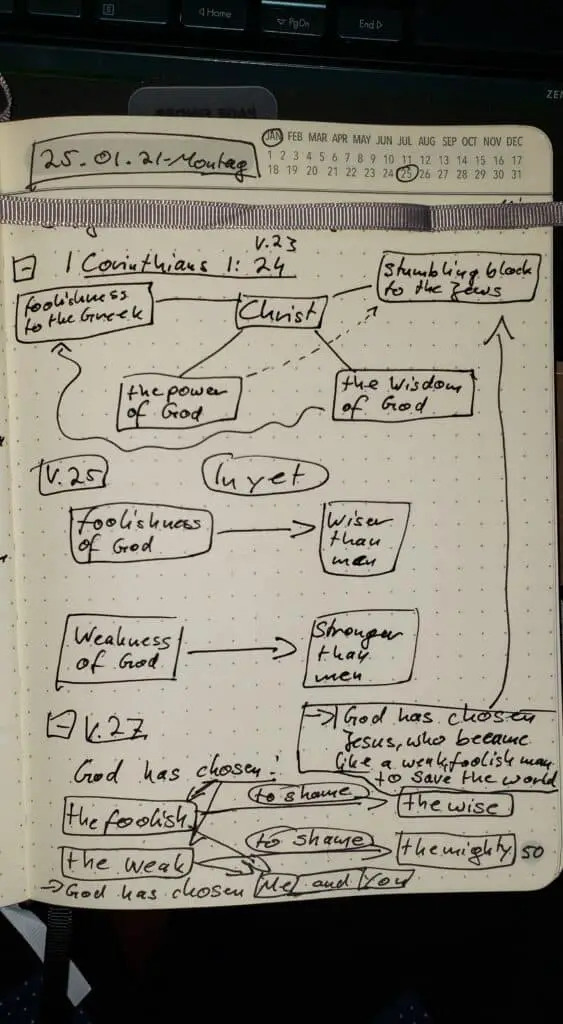 Home
PgDn
End
ZEN
25.01.21-Montag
JAN FEB MAR APR MAY JUN JUL AUG SEP OCT NOV DEC
1 2 3 4 5 6 7 8 9 10 11 12 13 14 15 16 17
18 19 20 21 22 23 24 25 26 27 28 29 30 31
V.23
1 Corinthians 1: 24
foolishness
to the Greek
Christ
Stumbling block
to the Jews
the power
of God
the Wisdom
of God
V.25
In yet
foolishness
of God
Wiser
than
man
Weakness
of God
Stronger
than
men
V.27
God has chosen
Jesus, who became
like a weak, foolish man
to save the world
God has chosen:
the foolish
to shame
the wise
the weak
to shame
the mighty
50
→ God has chosen Me and You